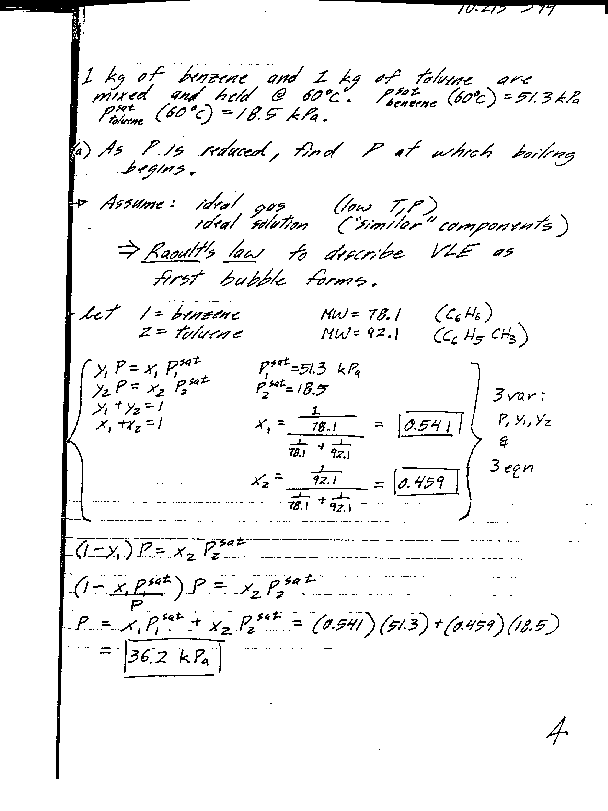 1 kg of benzene and 1 kg of toluene are
mixed and held @ 60°C. P^sat_benzene (60°C) = 51.3 kPa
P^sat_toluene (60°C) = 18.5 kPa.
(a) As P is reduced, find P at which boiling
begins.
Assume: ideal gas (low T,P)
ideal solution ("similar" components)
⇒ Raoult's law to describe VLE as
first bubble forms.
Let 1 = benzene MW = 78.1 (C6H6)
2 = toluene MW = 92.1 (C6H5CH3)
y1 P = x1 P1^sat P1^sat = 51.3 kPa
y2 P = x2 P2^sat P2^sat = 18.5
y1 + y2 = 1
x1 + x2 = 1 x1 = (1/78.1) / (1/78.1 + 1/92.1) = 0.541
x2 = (1/92.1) / (1/78.1 + 1/92.1) = 0.459
3 var:
P, y1, y2
&
3 eqn
(1 - y1) P = x2 P2^sat
(1 - x1 P1^sat / P) P = x2 P2^sat
P = x1 P1^sat + x2 P2^sat = (0.541)(51.3) + (0.459)(18.5)
= 36.2 kPa
4